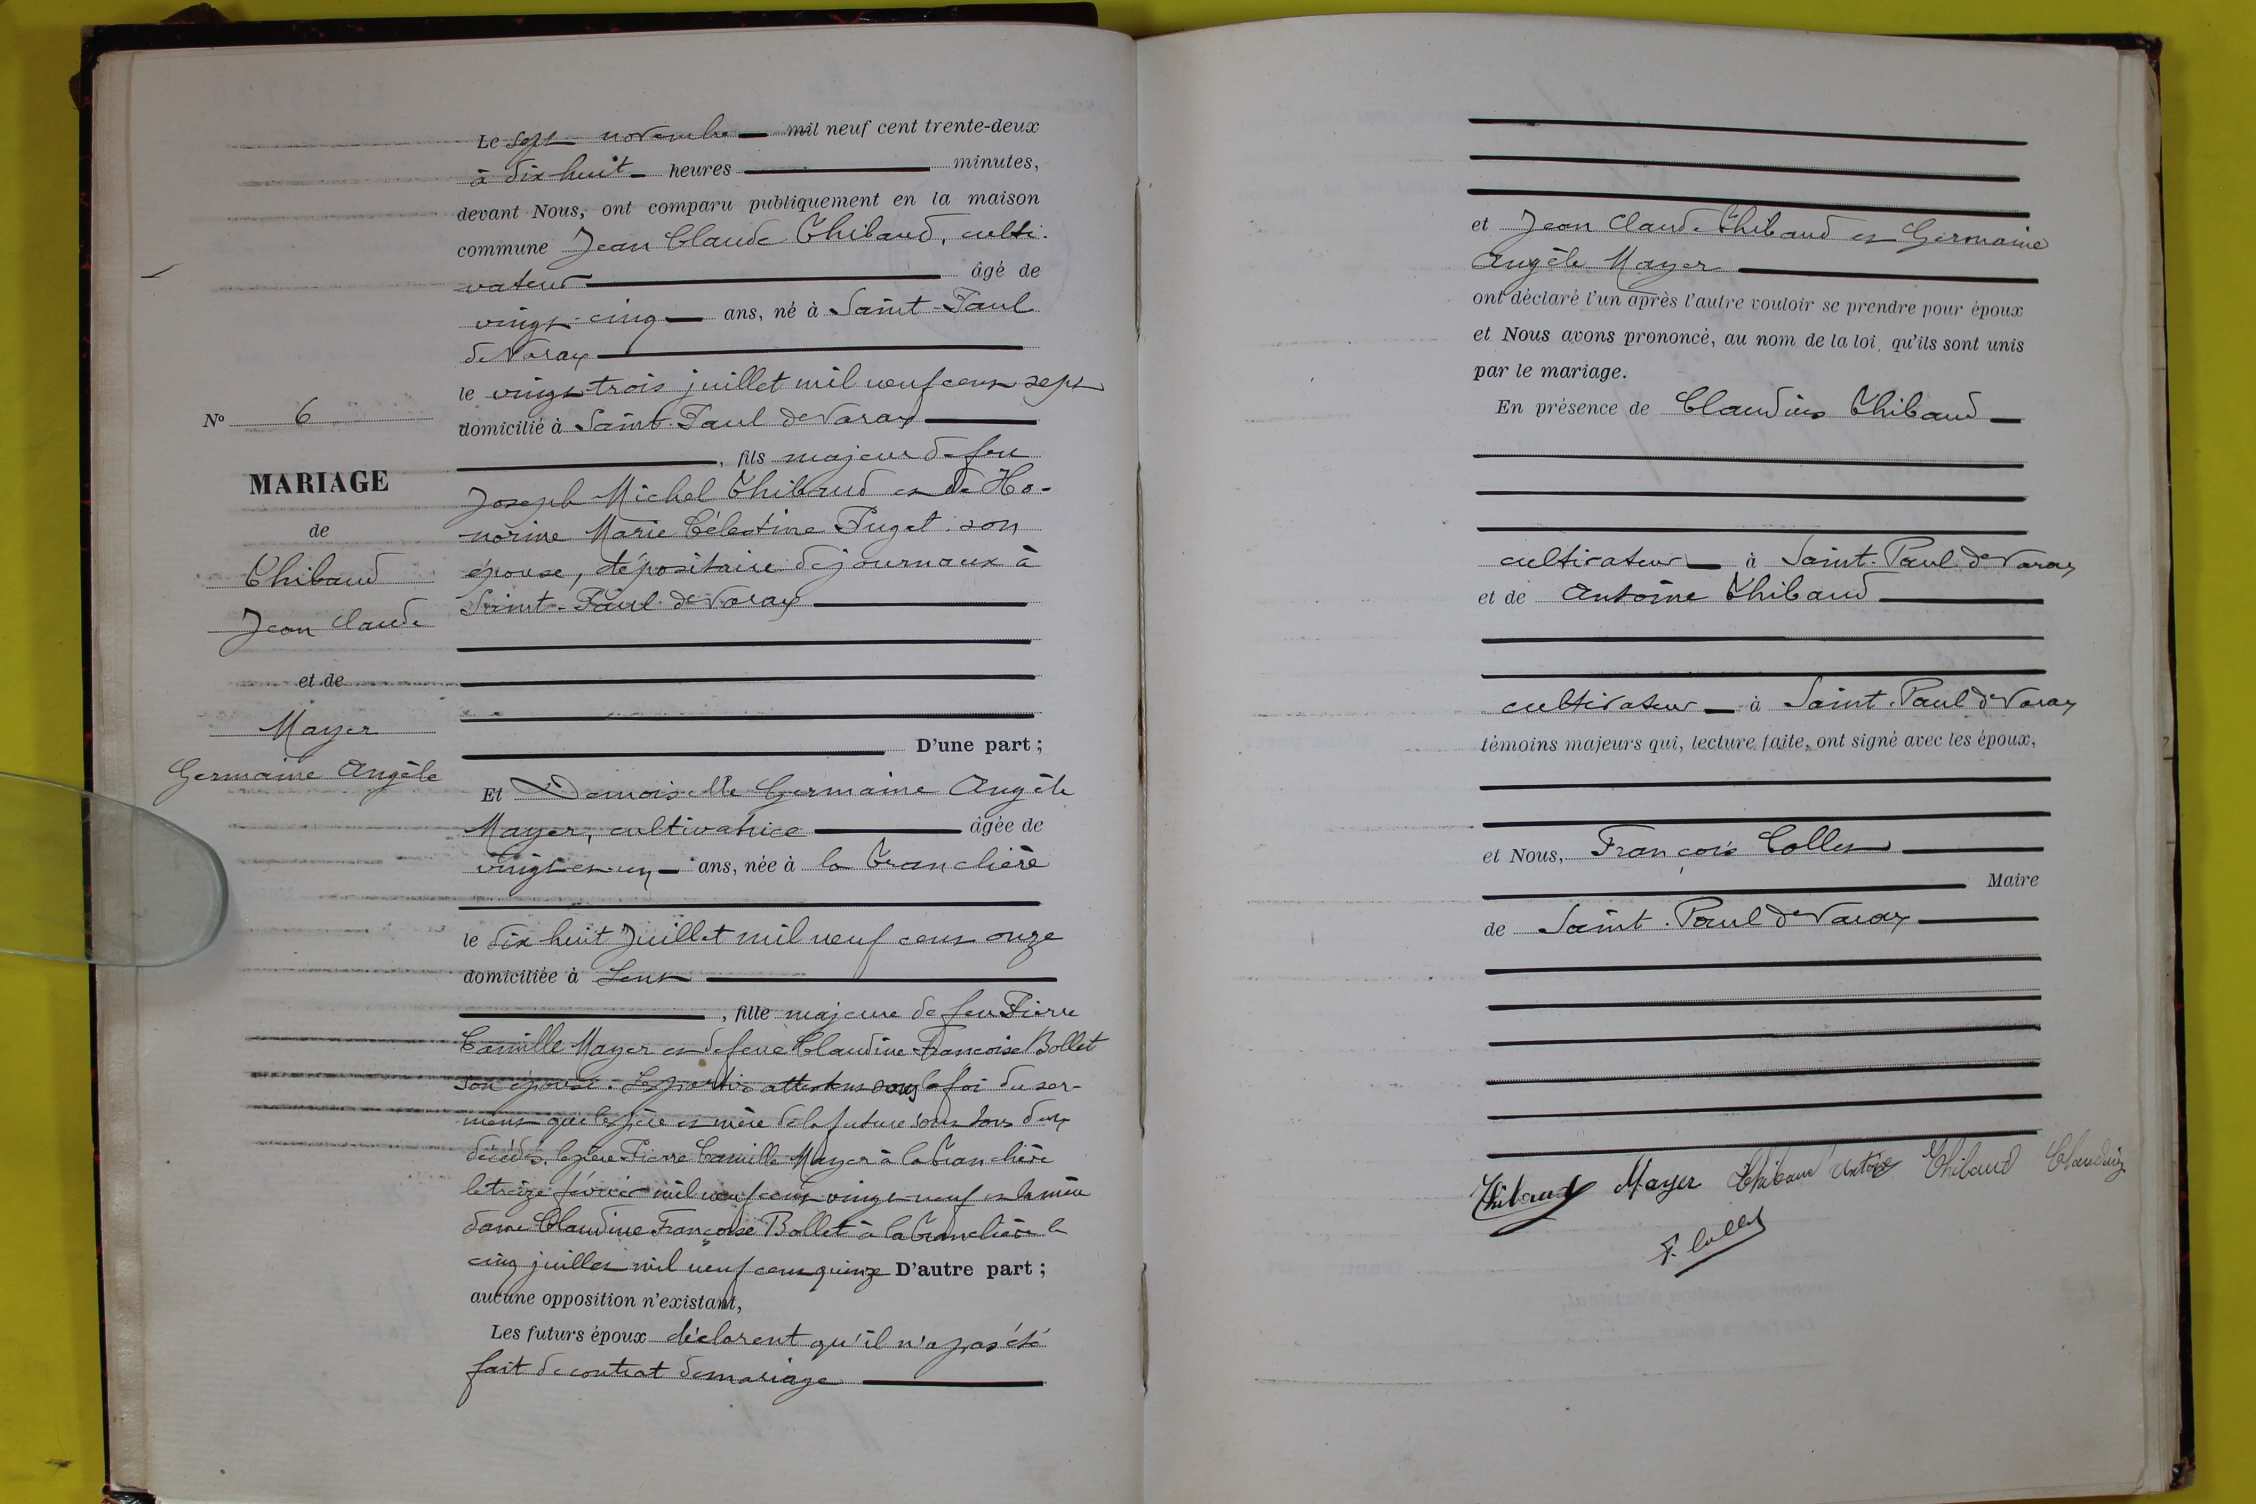 Le sept novembre mil neuf cent trente-deux
à dix huit heures minutes,
devant Nous, ont comparu publiquement en la maison
commune Jean Claude Thibaud, culti-
vateur âgé de
vingt-cinq ans, né à Saint-Paul
de Varax
le vingt trois juillet mil neuf cent sept
domicilié à Saint-Paul de Varax
, fils majeur de feu
Joseph Michel Thibaud et de Ho-
norine Marie Célestine Puget son
épouse, dépositaire de journaux à
Saint-Paul de Varax
D'une part ;
Et Demoiselle Germaine Angèle
Mayer, cultivatrice âgée de
vingt et un ans, née à la Tranclière
le dix huit Juillet mil neuf cent onze
domiciliée à Lent
, fille majeure de feu Pierre
Camille Mayer et de feue Claudine Françoise Bollet
son épouse. Les parties attestent sous la foi du ser-
ment que les père et mère de la future sont tous deux
décédés, le père Pierre Camille Mayer à la Tranclière
le treize février mil neuf cent vingt neuf et la mère
dame Claudine Françoise Bollet à la Tranclière le
cinq juillet mil neuf cent quinze D'autre part ;
aucune opposition n'existant,
Les futurs époux déclarent qu'il n'a pas été
fait de contrat de mariage
N° 6
MARIAGE
de
Thibaud
Jean Claude
et de
Mayer
Germaine Angèle
et Jean Claude Thibaud et Germaine
Angèle Mayer
ont déclaré l'un après l'autre vouloir se prendre pour époux
et Nous avons prononcé, au nom de la loi, qu'ils sont unis
par le mariage.
En présence de Claudius Thibaud
cultivateur à Saint-Paul de Varax
et de Antoine Thibaud
cultivateur à Saint-Paul de Varax
témoins majeurs qui, lecture faite, ont signé avec les époux,
et Nous, François Collet
Maire
de Saint-Paul de Varax
Thibaud Mayer Thibaud Antoine Thibaud Claudius
F. Collet